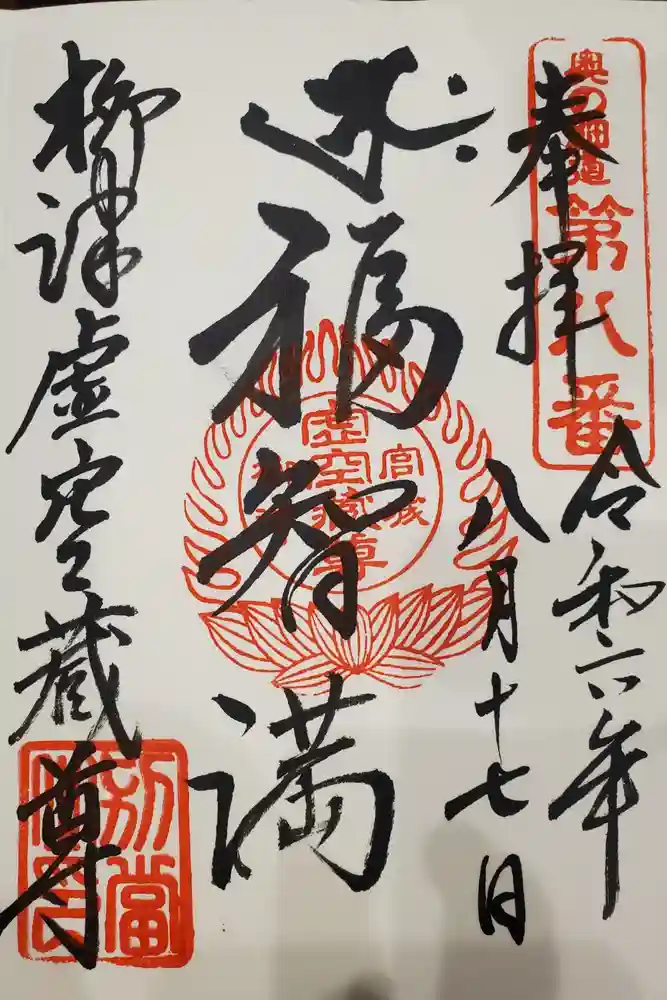 奉拝
奥の細道
第八番
令和六年
八月十七日
福智満
虚空蔵尊
宮城
柳津虚空蔵尊
別當